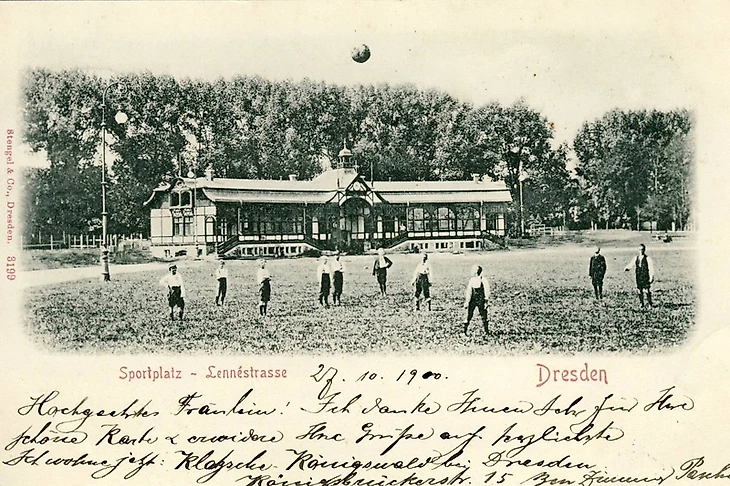 Stengel & Co., Dresden. 3199
Sportplatz - Lennéstrasse
27. 10. 1900.
Dresden
Hochgeehrtes Fräulein! Ich danke Ihnen sehr für Ihre
schöne Karte & erwidere Ihre Grüße auf herzlichste
Ich wohne jetzt: Klotzsche-Königswald bei Dresden
Königsbrückerstr. 15